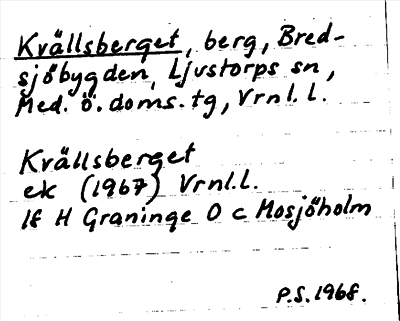 Kvällsberget, berg, Bred-
sjöbygden, Ljustorps sn,
Med. ö. doms. tg, Vrnl. L.
Kvällsberget
ek (1967) Vrnl. L.
lf H Graninge O c Mosjöholm
P.S. 1968.